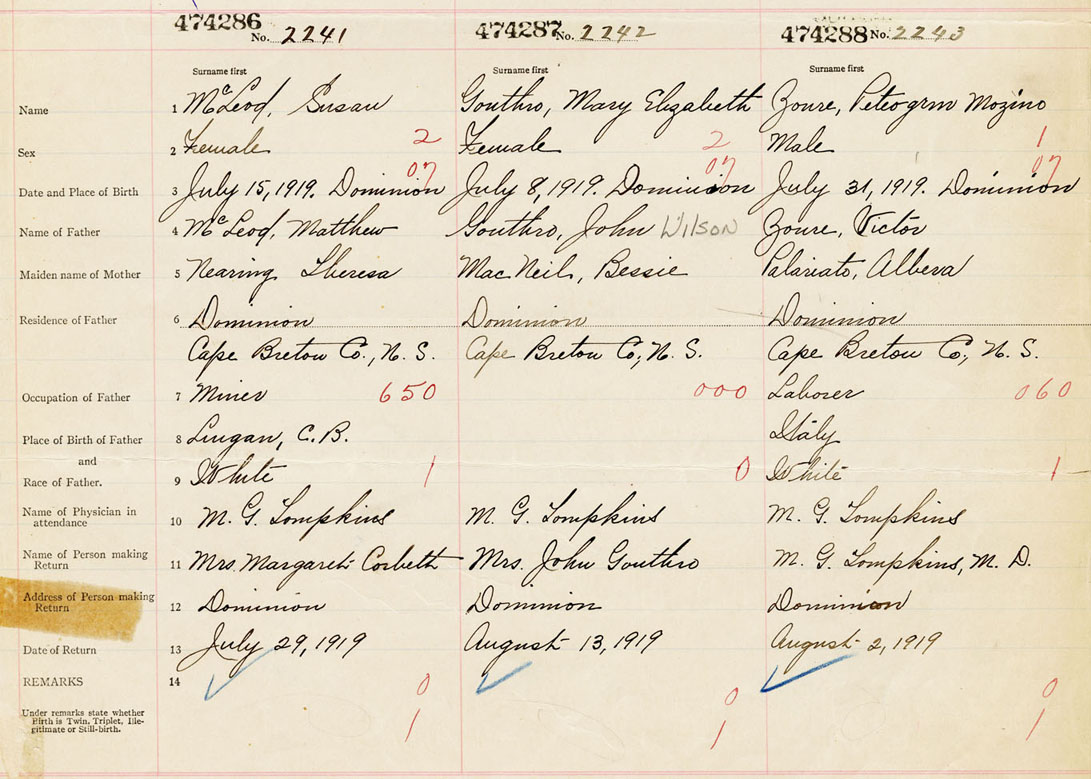 474286 No. 2241 474287 No. 2242 474288 No. 2243
Surname first Surname first Surname first
Name 1 McLeod, Susan Gouthro, Mary Elizabeth Zoure, Peteogrm Mozino
Sex 2 Female 2 Female 2 Male 1
07 07 07
Date and Place of Birth 3 July 15, 1919. Dominion July 8, 1919. Dominion July 31, 1919. Dominion
Name of Father 4 McLeod, Matthew Gouthro, John Wilson Zoure, Victor
Maiden name of Mother 5 Nearing Theresa MacNeil, Bessie Palariato, Albeva
Residence of Father 6 Dominion Dominion Dominion
Cape Breton Co., N. S. Cape Breton Co., N. S. Cape Breton Co., N. S.
Occupation of Father 7 Miner 650 000 Laborer 060
Place of Birth of Father 8 Lingan, C. B. Italy
and
Race of Father. 9 White 1 0 White 1
Name of Physician in
attendance 10 M. G. Tompkins M. G. Tompkins M. G. Tompkins
Name of Person making
Return 11 Mrs. Margaret Corbett Mrs. John Gouthro M. G. Tompkins, M. D.
Address of Person making
Return 12 Dominion Dominion Dominion
Date of Return 13 July 29, 1919 August 13, 1919 August 2, 1919
REMARKS 14 0 0 0
Under remarks state whether
Birth is Twin, Triplet, Ille-
gitimate or Still-birth. 1 1 1